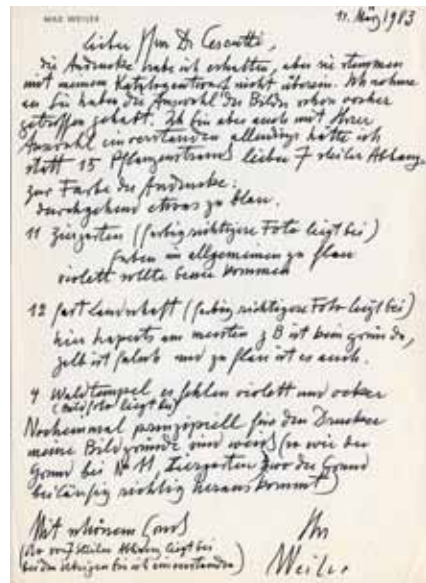 MAX WEILER
11. März 1983
lieber Herr Dr Cescutti,
die Andrucke habe ich erhalten, aber sie stimmen
mit meinem Katalogentwurf nicht überein. Ich nehme
an Sie haben die Auswahl der Bilder schon vorher
getroffen gehabt. Ich bin aber auch mit Ihrer
Auswahl einverstanden allerdings hätte ich
statt 15 Pflanzenstrauß lieber 7 steiler Abhang.
zur Farbe der Andrucke:
durchgehend etwas zu blau.
11 Ziergarten (farbig richtigere Foto liegt bei)
Farben im allgemeinen zu blau
violett sollte besser kommen
12 Landschaft (farbig richtigere Foto liegt bei)
hier haperts am meisten z B ist kein grün da,
gelb ist falsch und zu blau ist es auch.
4 Waldtempel es fehlen violett und ocker
(Foto liegt bei)
Nocheinmal prinzipiell für den Drucker
meine Bildgründe sind weiß (so wie der
Grund bei No 11, Ziergarten, wo der Grund
beiläufig richtig herauskommt)
Mit schönem Gruß
Ihr
(Dia von 7 steiler Abhang liegt bei
bei den übrigen bin ich einverstanden)
Weiler